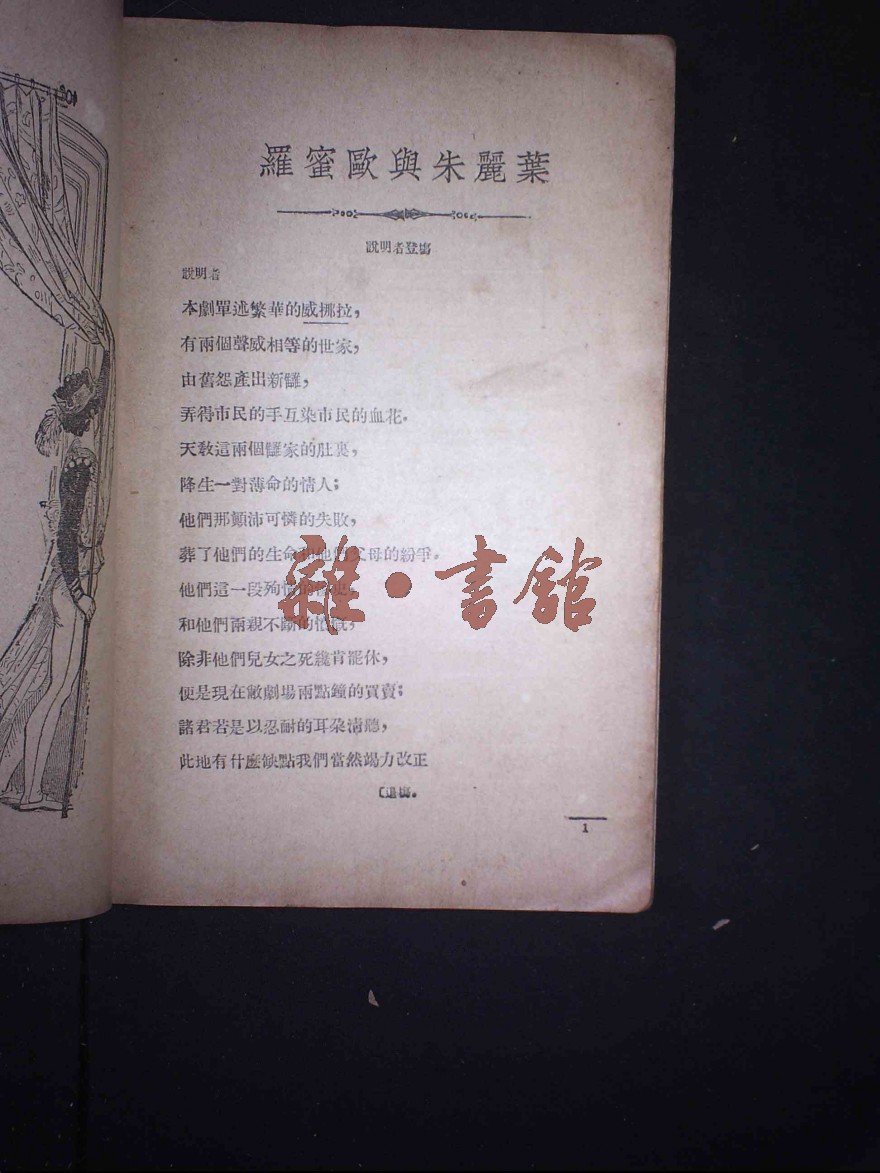 羅蜜歐與朱麗葉
說明者登場
說明者
本劇單述繁華的威挪拉,
有兩個聲威相等的世家,
由舊怨產出新讎,
弄得市民的手互染市民的血花。
天教這兩個讎家的肚裏,
降生一對薄命的情人;
他們那顛沛可憐的失敗,
葬了他們的生命和他們父母的紛爭。
他們這一段殉情的
和他們兩親不斷的
除非他們兒女之死纔肯罷休,
便是現在敝劇場兩點鐘的買賣;
諸君若是以忍耐的耳朶清聽,
此地有什麼缺點我們當然竭力改正
〔退場。
1
雜·書館